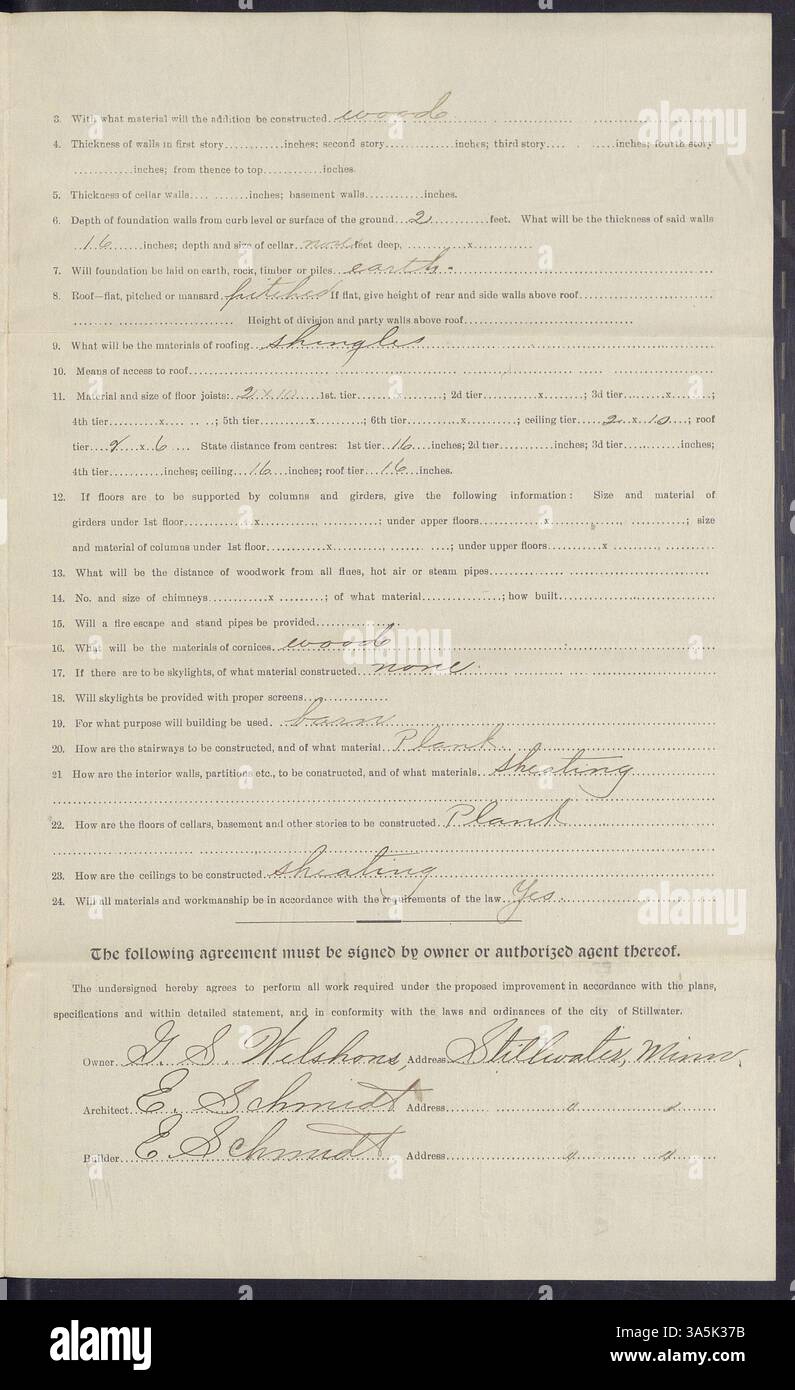 3. With what material will the addition be constructed. wood
4. Thickness of walls in first story............inches; second story..............inches; third story..............inches; fourth story
............inches; from thence to top............inches.
5. Thickness of cellar walls............inches; basement walls............inches.
6. Depth of foundation walls from curb level or surface of the ground...2............feet. What will be the thickness of said walls
..16......inches; depth and size of cellar..none feet deep, ............x............
7. Will foundation be laid on earth, rock, timber or piles. earth.
8. Roof—flat, pitched or mansard. pitched If flat, give height of rear and side walls above roof
Height of division and party walls above roof
9. What will be the materials of roofing. shingles
10. Means of access to roof
11. Material and size of floor joists: 2 x 10......1st. tier..........x........; 2d tier............x........; 3d tier.........x........;
4th tier..........x..........; 5th tier...........x..........; 6th tier...........x..........; ceiling tier.....2...x..10....; roof
tier....2....x..6.... State distance from centres: 1st tier..16....inches; 2d tier...........inches; 3d tier...........inches;
4th tier...........inches; ceiling...16...inches; roof tier...16...inches.
12. If floors are to be supported by columns and girders, give the following information: Size and material of
girders under 1st floor..............x............, ..............; under upper floors.............x............, ..............; size
and material of columns under 1st floor............x............, ..............; under upper floors...........x............, ..........
13. What will be the distance of woodwork from all flues, hot air or steam pipes
14. No. and size of chimneys............x..........; of what material................; how built
15. Will a fire escape and stand pipes be provided
16. What will be the materials of cornices. wood
17. If there are to be skylights, of what material constructed. none.
18. Will skylights be provided with proper screens
19. For what purpose will building be used. barn
20. How are the stairways to be constructed, and of what material. Plank
21 How are the interior walls, partitions etc., to be constructed, and of what materials. sheating
22. How are the floors of cellars, basement and other stories to be constructed. Plank
23. How are the ceilings to be constructed. sheating
24. Will all materials and workmanship be in accordance with the requirements of the law. Yes.
The following agreement must be signed by owner or authorized agent thereof.
The undersigned hereby agrees to perform all work required under the proposed improvement in accordance with the plans,
specifications and within detailed statement, and in conformity with the laws and ordinances of the city of Stillwater.
Owner. G. S. Welshons, Address Stillwater, Minn.
Architect. E. Schmidt Address " "
Builder. E Schmidt Address " "
alamy
Image ID: 3A5K37B
www.alamy.com